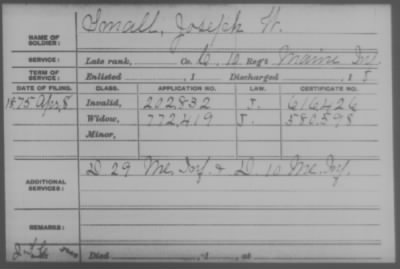 NAME OF SOLDIER: Small, Joseph H.
SERVICE: Late rank, Co. C, 10 Reg't Maine Inf.
TERM OF SERVICE: Enlisted , 1 Discharged , 1
DATE OF FILING. CLASS. APPLICATION NO. LAW. CERTIFICATE NO.
1875 Apr. 8 Invalid, 202,832 J. 616426
Widow, 772,419 J. 580,598
Minor,
ADDITIONAL SERVICES: D. 29 Me. Inf. & D. 10 Me. Inf.
REMARKS:
Died , 1 , at